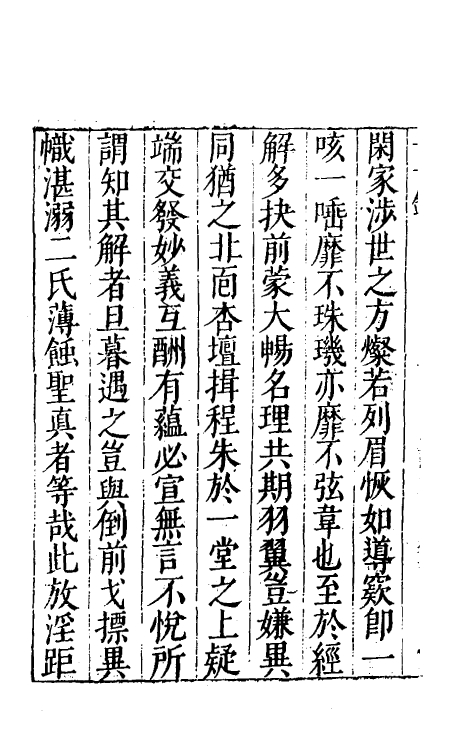 閑家涉世之方燦若列眉恢如導窾即一
咳一唾靡不珠璣亦靡不弦韋也至於經
解多抉前蒙大暢名理共期羽翼豈嫌異
同猶之北面杏壇揖程朱於一堂之上疑
端交發妙義互酬有蘊必宣無言不悅所
謂知其解者旦暮遇之豈與倒前戈摽異
幟湛溺二氏薄蝕聖真者等哉此放淫距